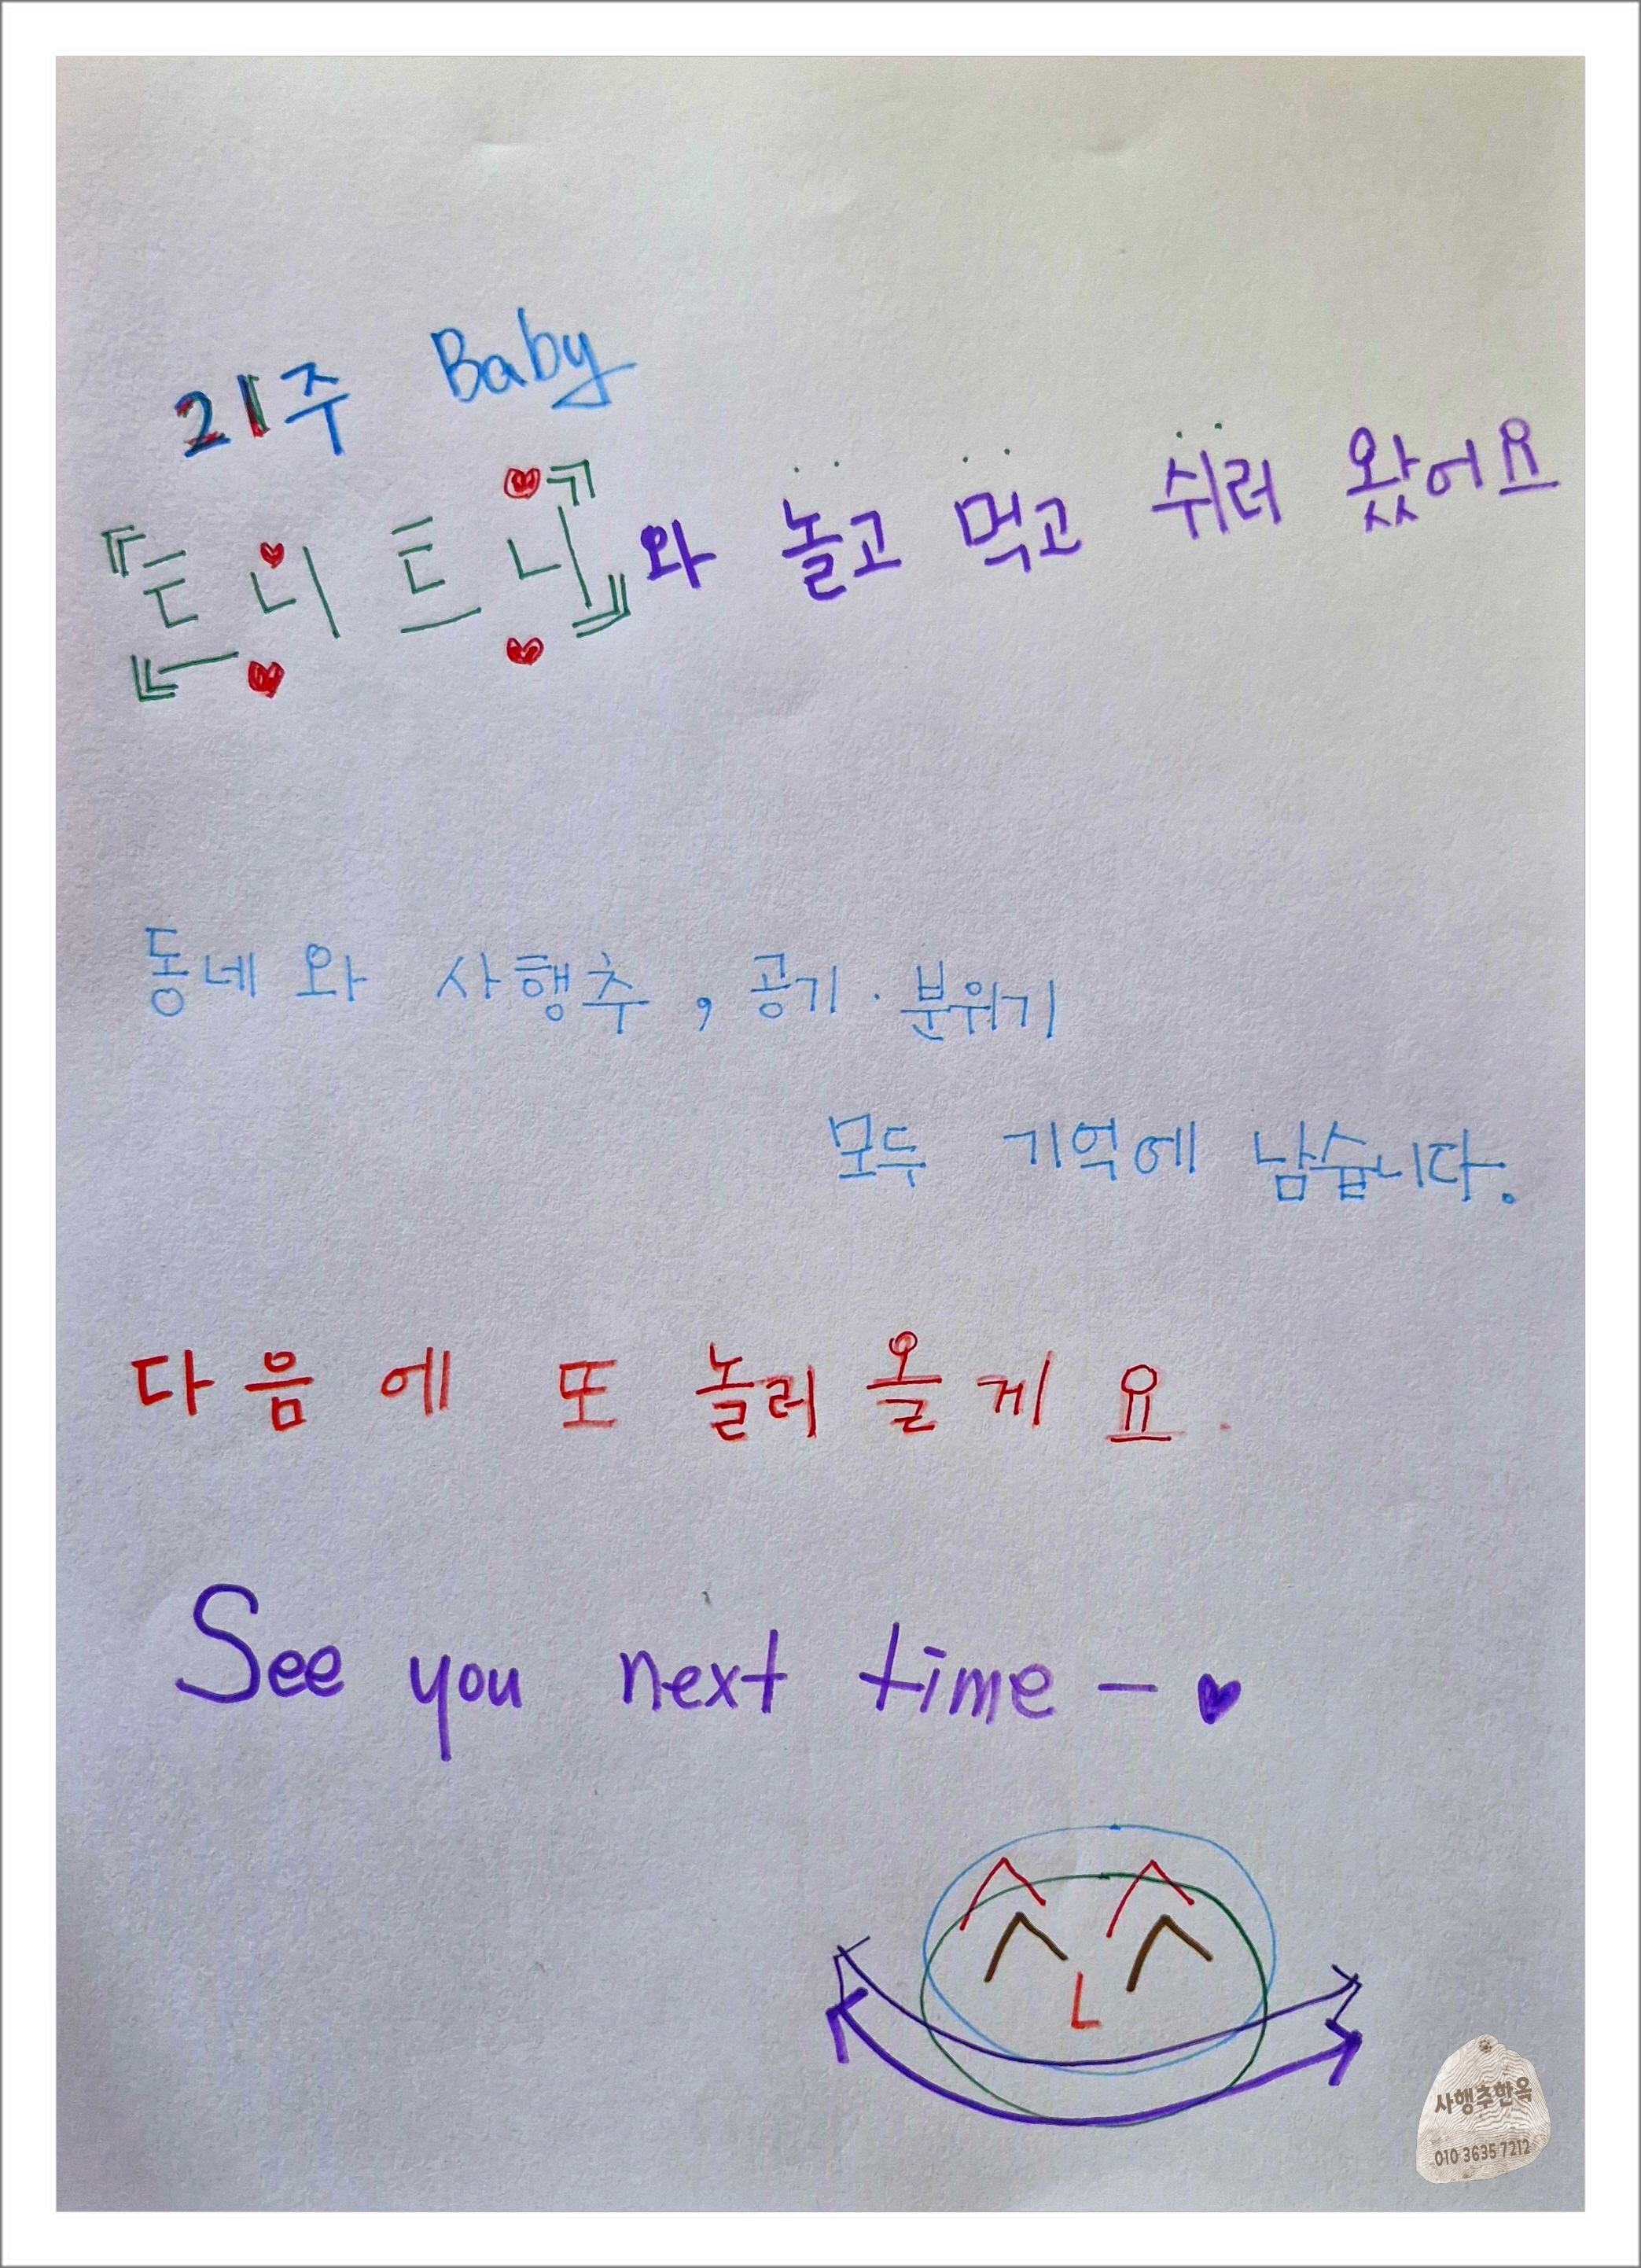 21주 Baby
『트니트니』와 놀고 먹고 쉬러 왔어요
동네와 사행추, 공기·분위기
모두 기억에 남습니다.
다음에 또 놀러 올게요.
See you next time – ♥
사행추한옥
010 3635 7212